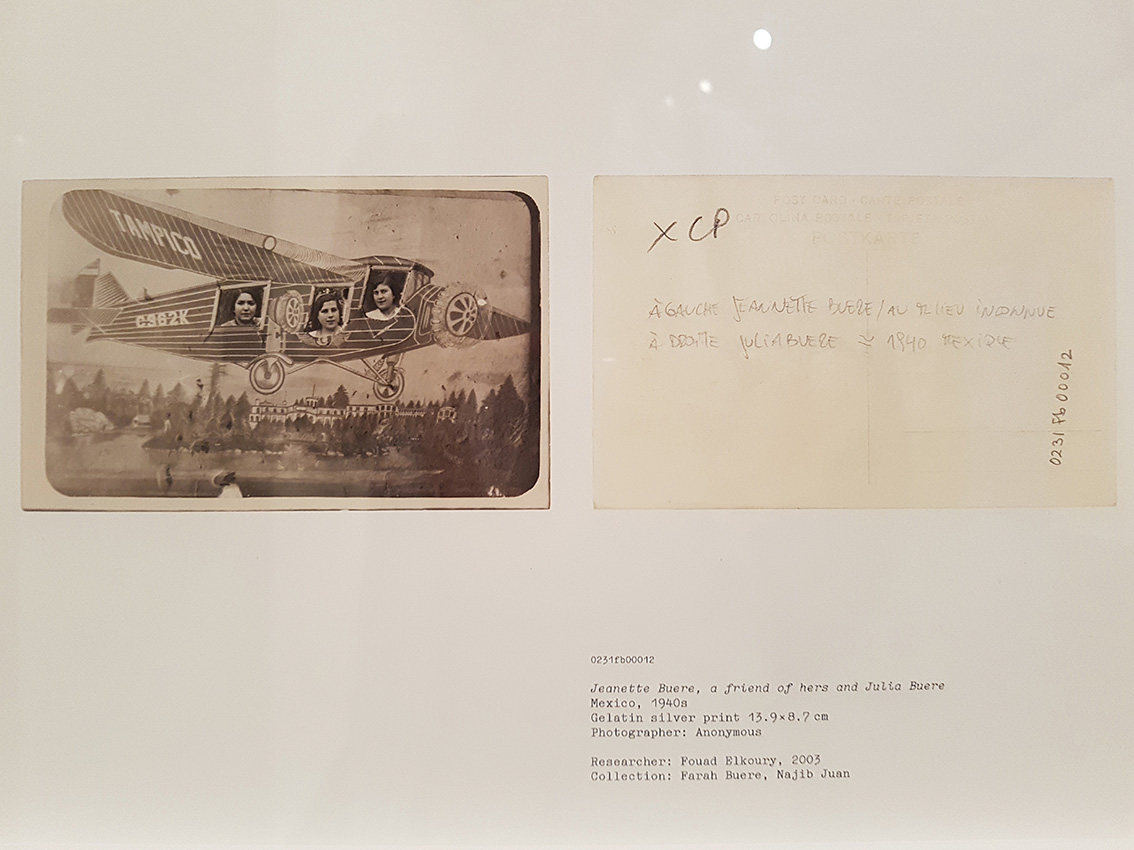 TAMPICO
C982K
POST CARD · CARTE POSTALE
CARTOLINA POSTALE
POSTKARTE
X CP
À GAUCHE JEANNETTE BUERE / AU MILIEU INCONNUE
À DROITE JULIA BUERE ≃ 1940 MEXIQUE
0231fb00012
0231fb00012
Jeanette Buere, a friend of hers and Julia Buere
Mexico, 1940s
Gelatin silver print 13.9×8.7 cm
Photographer: Anonymous
Researcher: Fouad Elkoury, 2003
Collection: Farah Buere, Najib Juan